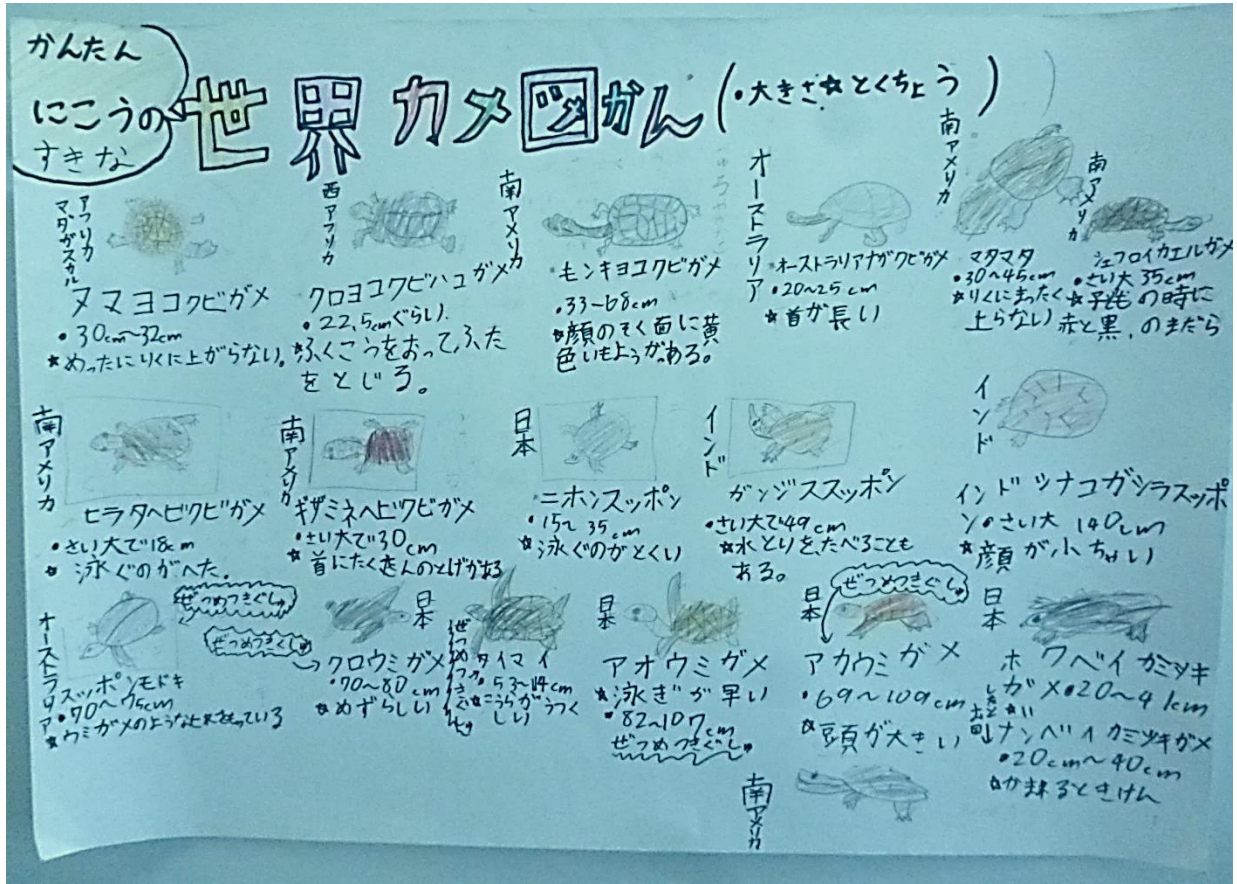 かんたん
にこうの
すきな
世界カメ図かん(・大きさ☆とくちょう)
アフリカ
マダガスカル
ヌマヨコクビガメ
・30cm~32cm
☆めったにりくに上がらない。
西アフリカ
クロヨコクビハコガメ
・22,5cmぐらい
☆ふくこうをおってふた
をとじる。
南アメリカ
モンキヨコクビガメ
・33~68cm
☆顔のそく面に黄
色いもようがある。
オーストラリア
オーストラリアナガクビガメ
・20~25cm
☆首が長い
南アメリカ
マタマタ
・30~45cm
☆りくにまったく
上らない
南アメリカ
ジェフロイカエルガメ
・さい大35cm
☆子どもの時に
赤と黒,のまだら
南アメリカ
ヒラタヘビクビガメ
・さい大で18cm
☆泳ぐのがへた。
南アメリカ
ギザミネヘビクビガメ
・さい大で30cm
☆首にたくさんのとげがある
日本
ニホンスッポン
・15~35cm
☆泳ぐのがとくい
インド
ガンジススッポン
・さい大で49cm
☆水とりをたべることも
ある。
インド
インドシナコガシラスッポ
ン・さい大 140cm
☆顔が小ちゃい
オーストラリア
スッポンモドキ
・70~75cm
☆ウミガメのようなヒレをもっている
ぜつめつきぐしゅ
ぜつめつきぐしゅ
クロウミガメ
・70~80cm
☆めずらしい
日本
ぜつめつきぐしゅ
タイマイ
・53~114cm
☆こうらがうつく
しい
日本
アオウミガメ
☆泳ぎが早い
・82~107cm
ぜつめつきぐしゅ
ぜつめつきぐしゅ
日本
アカウミガメ
・69~109cm
☆頭が大きい
日本
ホクベイカミツキ
ガメ・20~41cm
ナンベイカミツキガメ
・20cm~40cm
☆かまれるときけん
南アメリカ